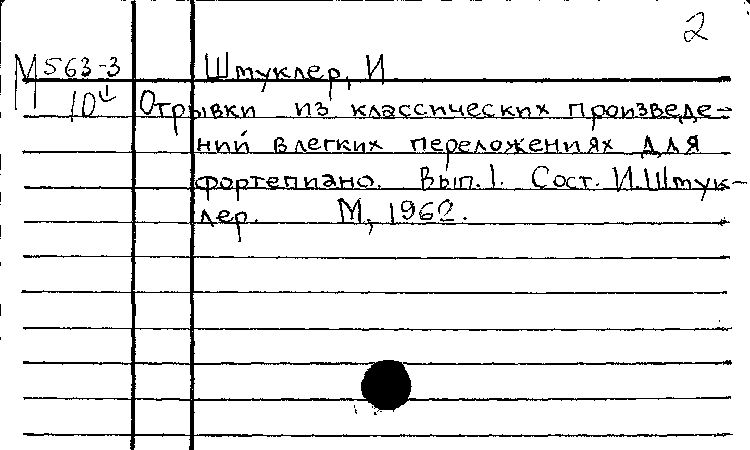 2
М 563-3 Штуклер, И
10 Отрывки из классических произведе-
ний в легких переложениях для
фортепиано. Вып. 1. Сост. И. Штук-
лер. М, 1962.